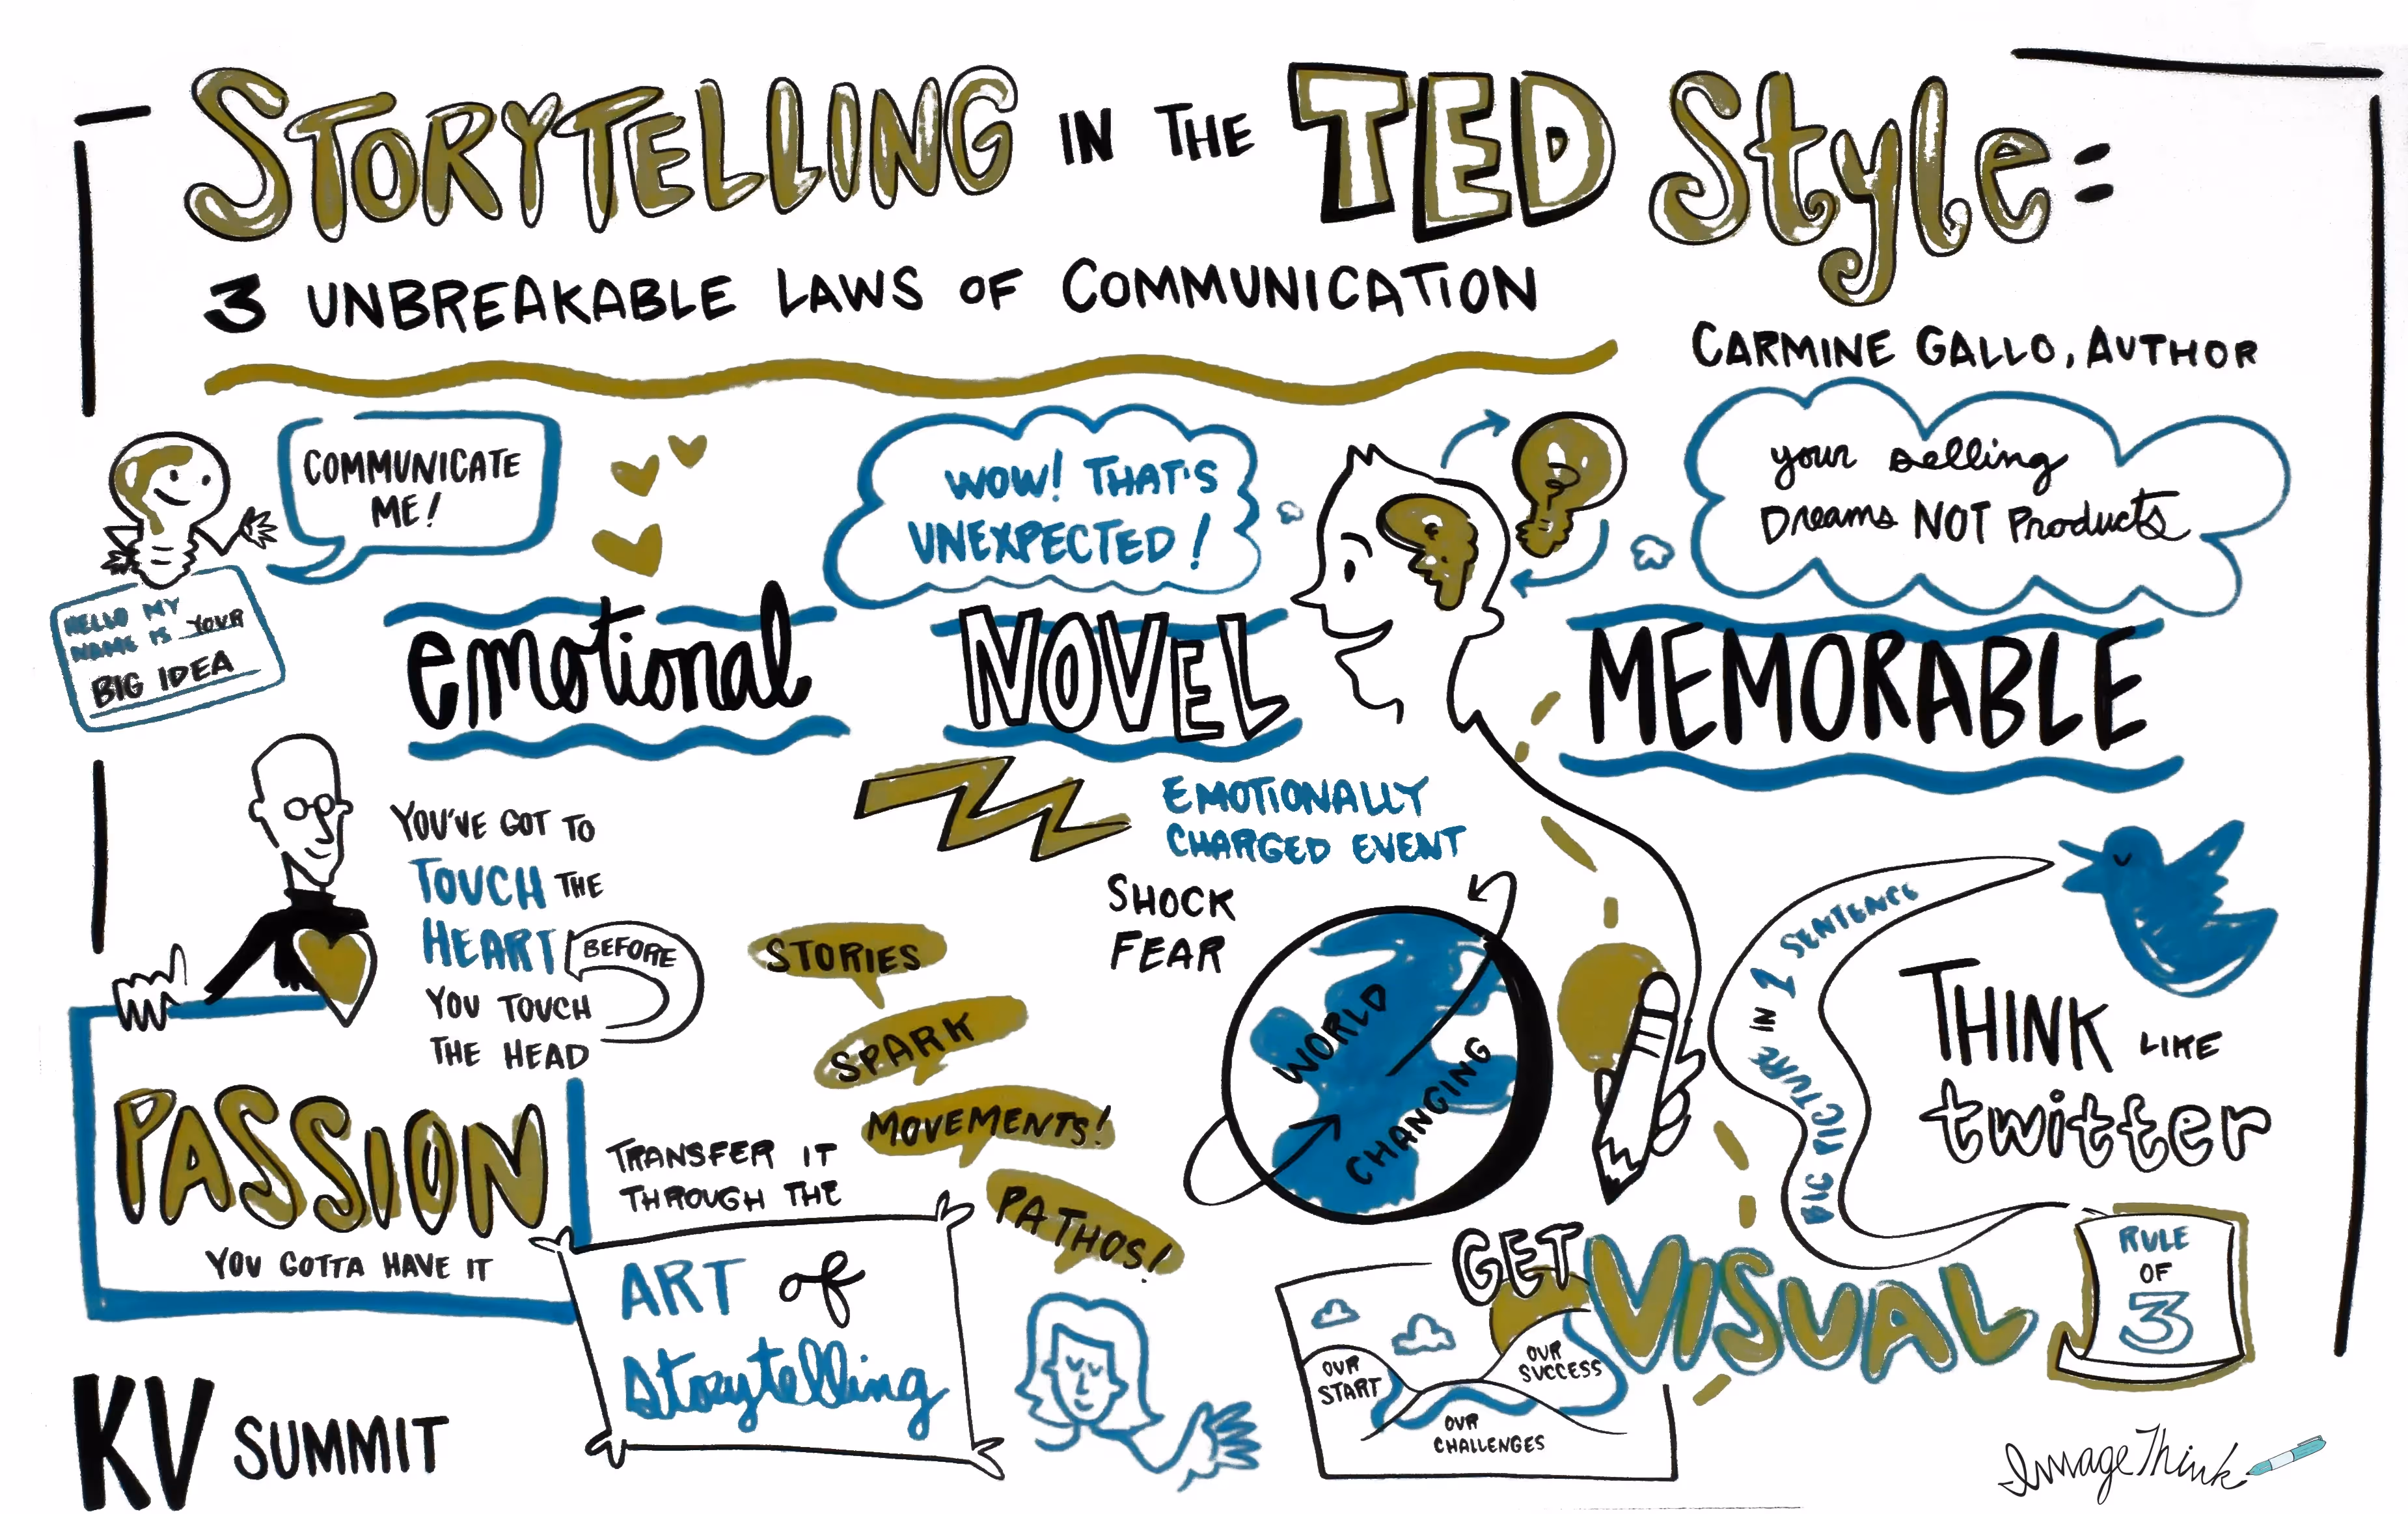 STORYTELLING IN THE TED Style:
3 UNBREAKABLE LAWS OF COMMUNICATION
CARMINE GALLO, AUTHOR
COMMUNICATE
ME!
HELLO MY
NAME IS YOUR
BIG IDEA
WOW! THAT'S
UNEXPECTED!
your selling
Dreams NOT Products
emotional
NOVEL
MEMORABLE
YOU'VE GOT TO
TOUCH THE
HEART BEFORE
YOU TOUCH
THE HEAD
PASSION
YOU GOTTA HAVE IT
TRANSFER IT
THROUGH THE
ART of
Storytelling
STORIES
SPARK
MOVEMENTS!
PATHOS!
EMOTIONALLY
CHARGED EVENT
SHOCK
FEAR
WORLD
CHANGING
BIG PICTURE IN 1 SENTENCE
THINK LIKE
twitter
GET VISUAL
OUR
START
OUR
SUCCESS
OUR
CHALLENGES
RULE
OF
3
KV SUMMIT
ImageThink